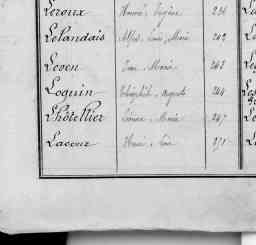 Leroux Honoré, Eugène 236
Lelandais Alfred, Louis, Marie 242
Leven Jean, Marie 243
Loquin Théophile, Auguste 244
Lhôtellier Marie 247
Lacour Henri 271